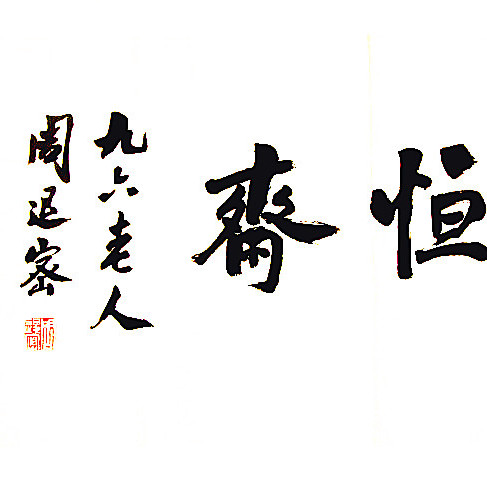 恒齋
九六老人
周退密